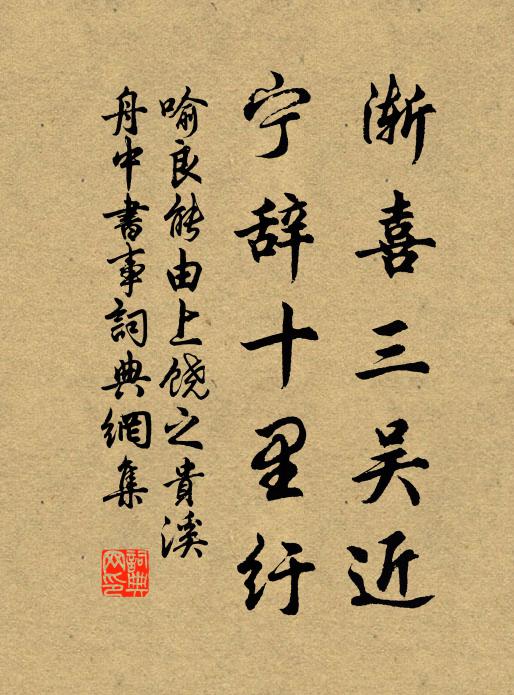 渐喜三吴近
宁辞十里纡
喻良能由上饶之貴溪
舟中書事詞典網集
詞典
网印